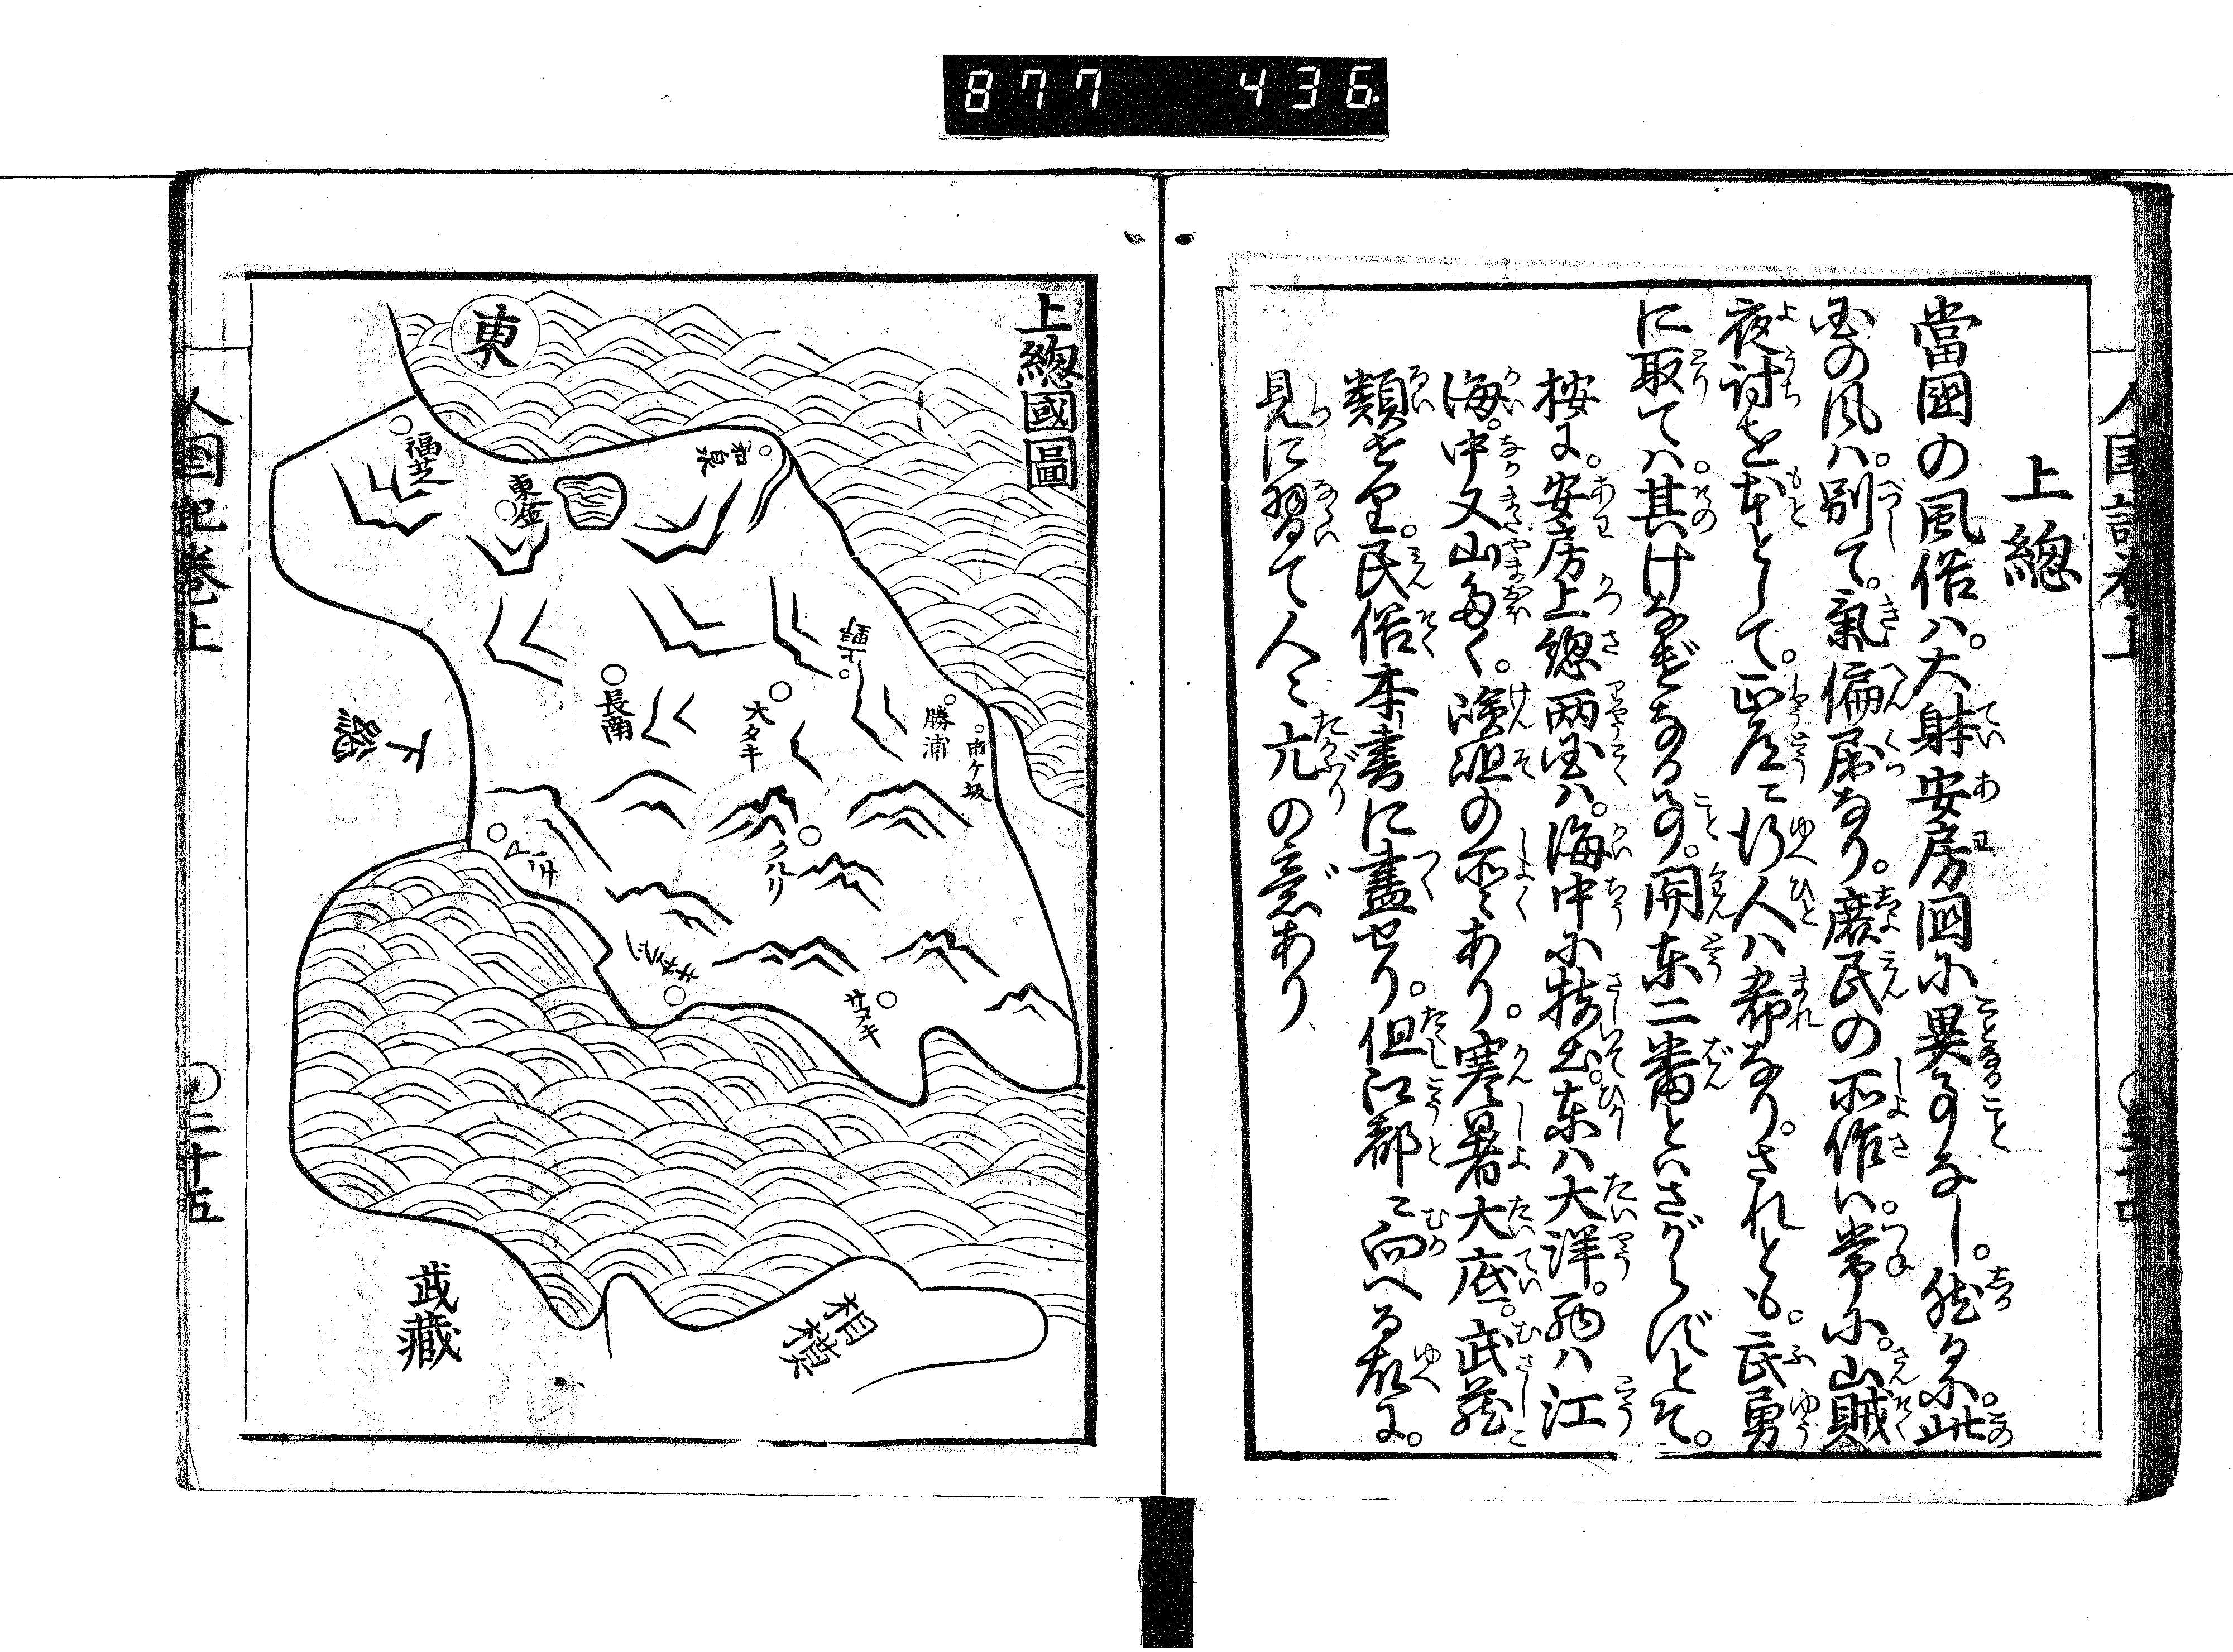 877 436
上總
當國の風俗ハ。大躰安房國に異る事なし。然るに。此
国の風ハ。別して。氣偏屈なり。庶民の所作ハ。常に。山賊
夜討を本として。正道に行人ハ希なり。されとも。武勇
に取てハ。其けなげなる事。関東二番とハさがらずとそ。
按に。安房上總両国ハ。海中に指出。東ハ大洋。西ハ江
海。中又山多く。険阻の所々あり。寒暑大底。武蔵
類せり。民俗本書に盡せり。但江都に向へる故に。
見に習て人々亢の意あり
上總國圖
東
福芝
東金
和泉
長南
大タキ
勝浦
市ケ坂
クルリ
サヌキ
下総
武藏
相模
人国記巻上
〇二十五